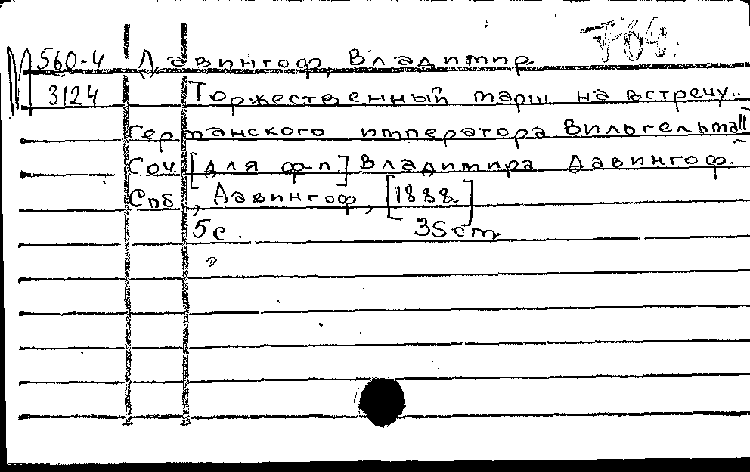 М 560-4 Давингоф, Владимир
3124 Торжественный марш на встречу
германского императора Вильгельма II
Соч. [для ф-п.] Владимира Давингоф.
Спб, Давингоф, [1888]
5 с. 35 cm